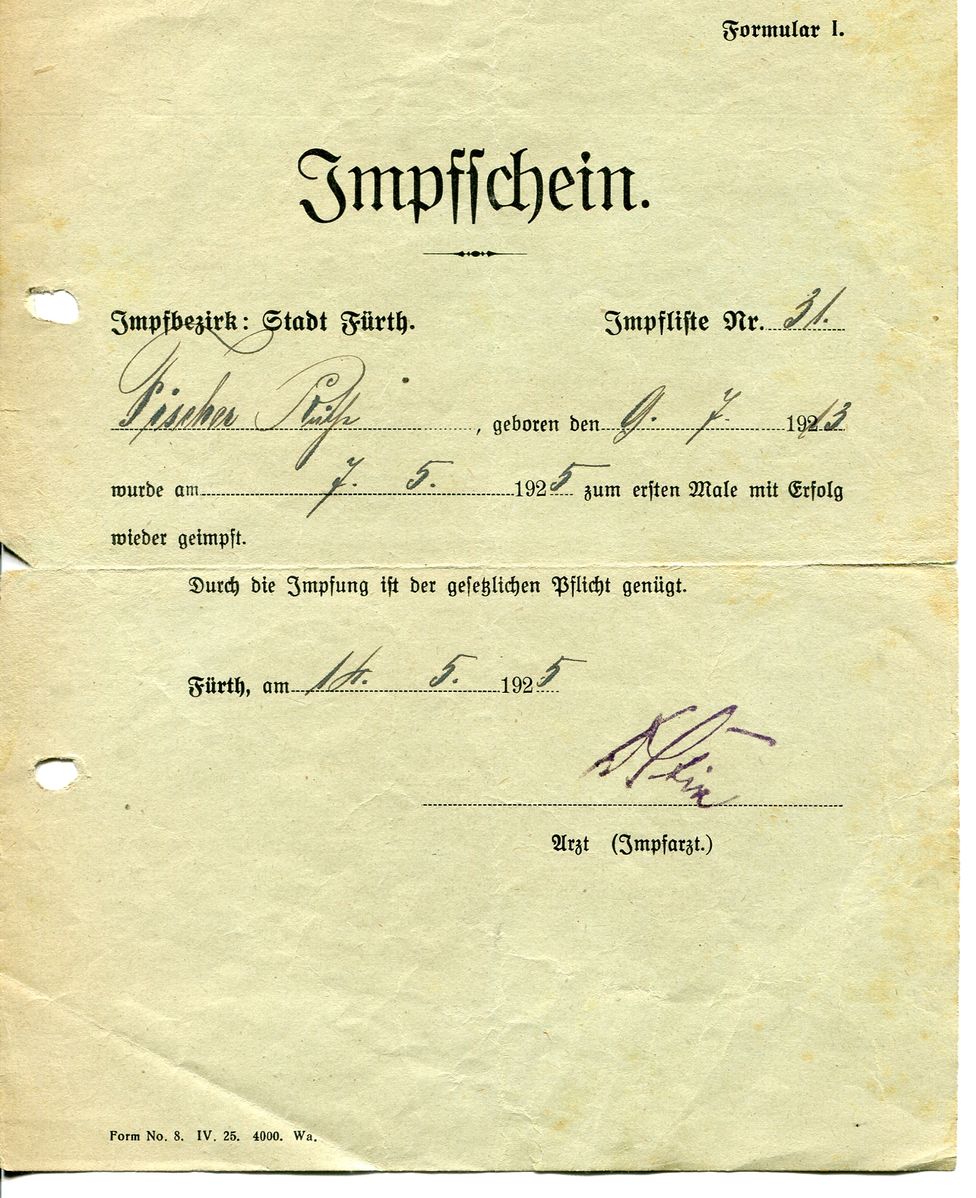 Formular I.
Impfschein.
Impfbezirk: Stadt Fürth. Impfliste Nr. 31.
Fischer , geboren den 9. 7. 19213
wurde am 7. 5. 1925 zum ersten Male mit Erfolg
wieder geimpft.
Durch die Impfung ist der gesetzlichen Pflicht genügt.
Fürth, am 14. 5. 1925
Arzt (Impfarzt.)
Form No. 8. IV. 25. 4000. Wa.